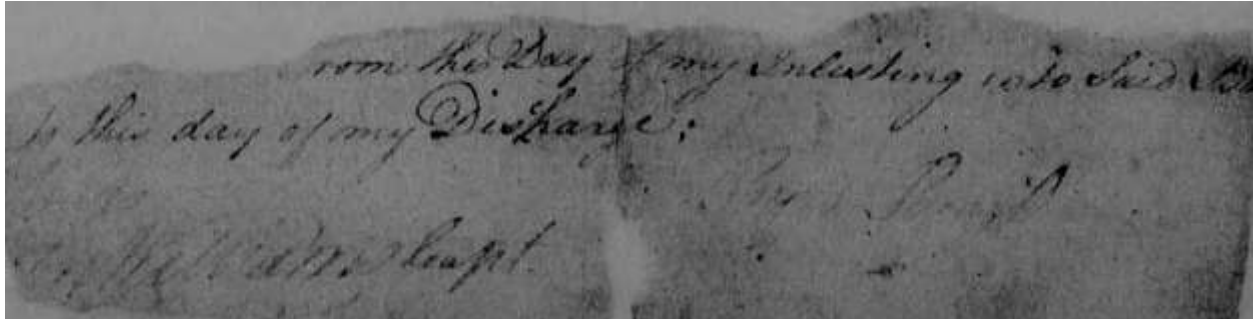 rom the Day of my Inlisting into Said
to this day of my Discharge:
Williams Capt.